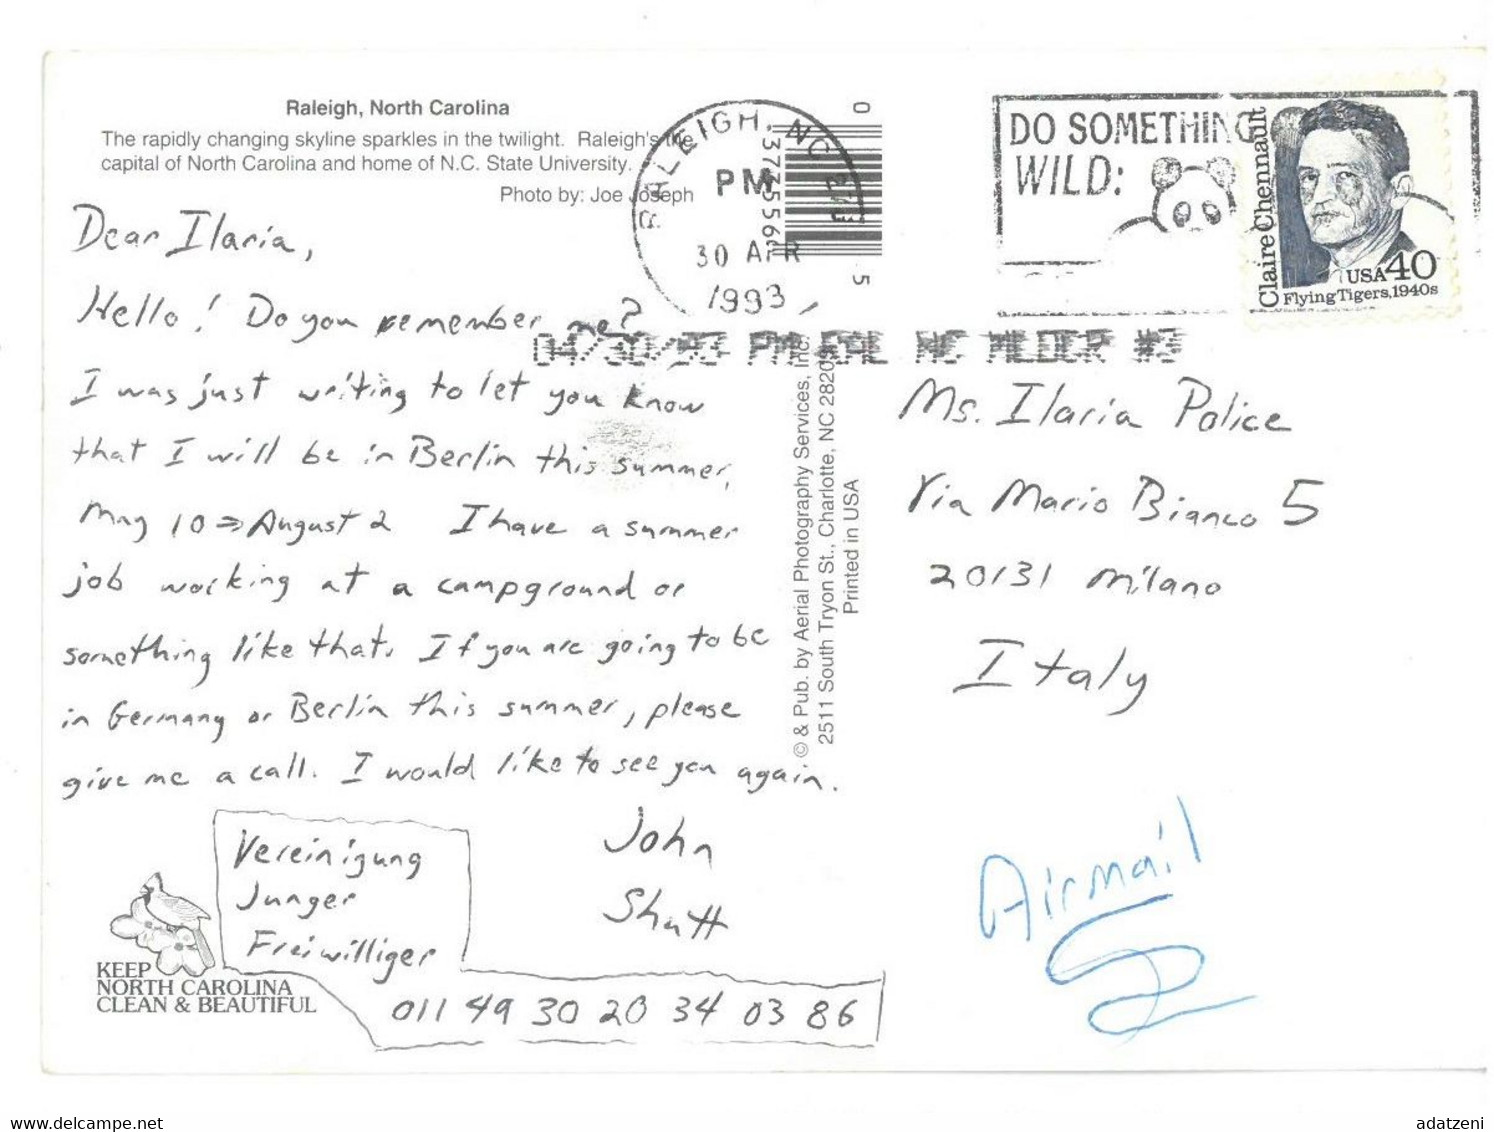 Raleigh, North Carolina
The rapidly changing skyline sparkles in the twilight. Raleigh's the
capital of North Carolina and home of N.C. State University.
Photo by: Joe Joseph
RALEIGH, NC
PM
30 APR
1993
0
37755
5
DO SOMETHING
WILD:
Claire Chennault
USA 40
Flying Tigers, 1940s
04/30/93 PM RAL NC MLOCR #3
Dear Ilaria,
Hello! Do you remember me?
I was just writing to let you know
that I will be in Berlin this summer,
May 10 ⇒ August 2 I have a summer
job working at a campground or
something like that. If you are going to be
in Germany or Berlin this summer, please
give me a call. I would like to see you again.
John
Shutt
Vereinigung
Junger
Freiwilliger
011 49 30 20 34 03 86
KEEP
NORTH CAROLINA
CLEAN & BEAUTIFUL
© & Pub. by Aerial Photography Services, Inc.
2511 South Tryon St., Charlotte, NC 28203
Printed in USA
Ms. Ilaria Police
Via Mario Bianco 5
20131 Milano
Italy
Airmail
www.delcampe.net
adatzeni